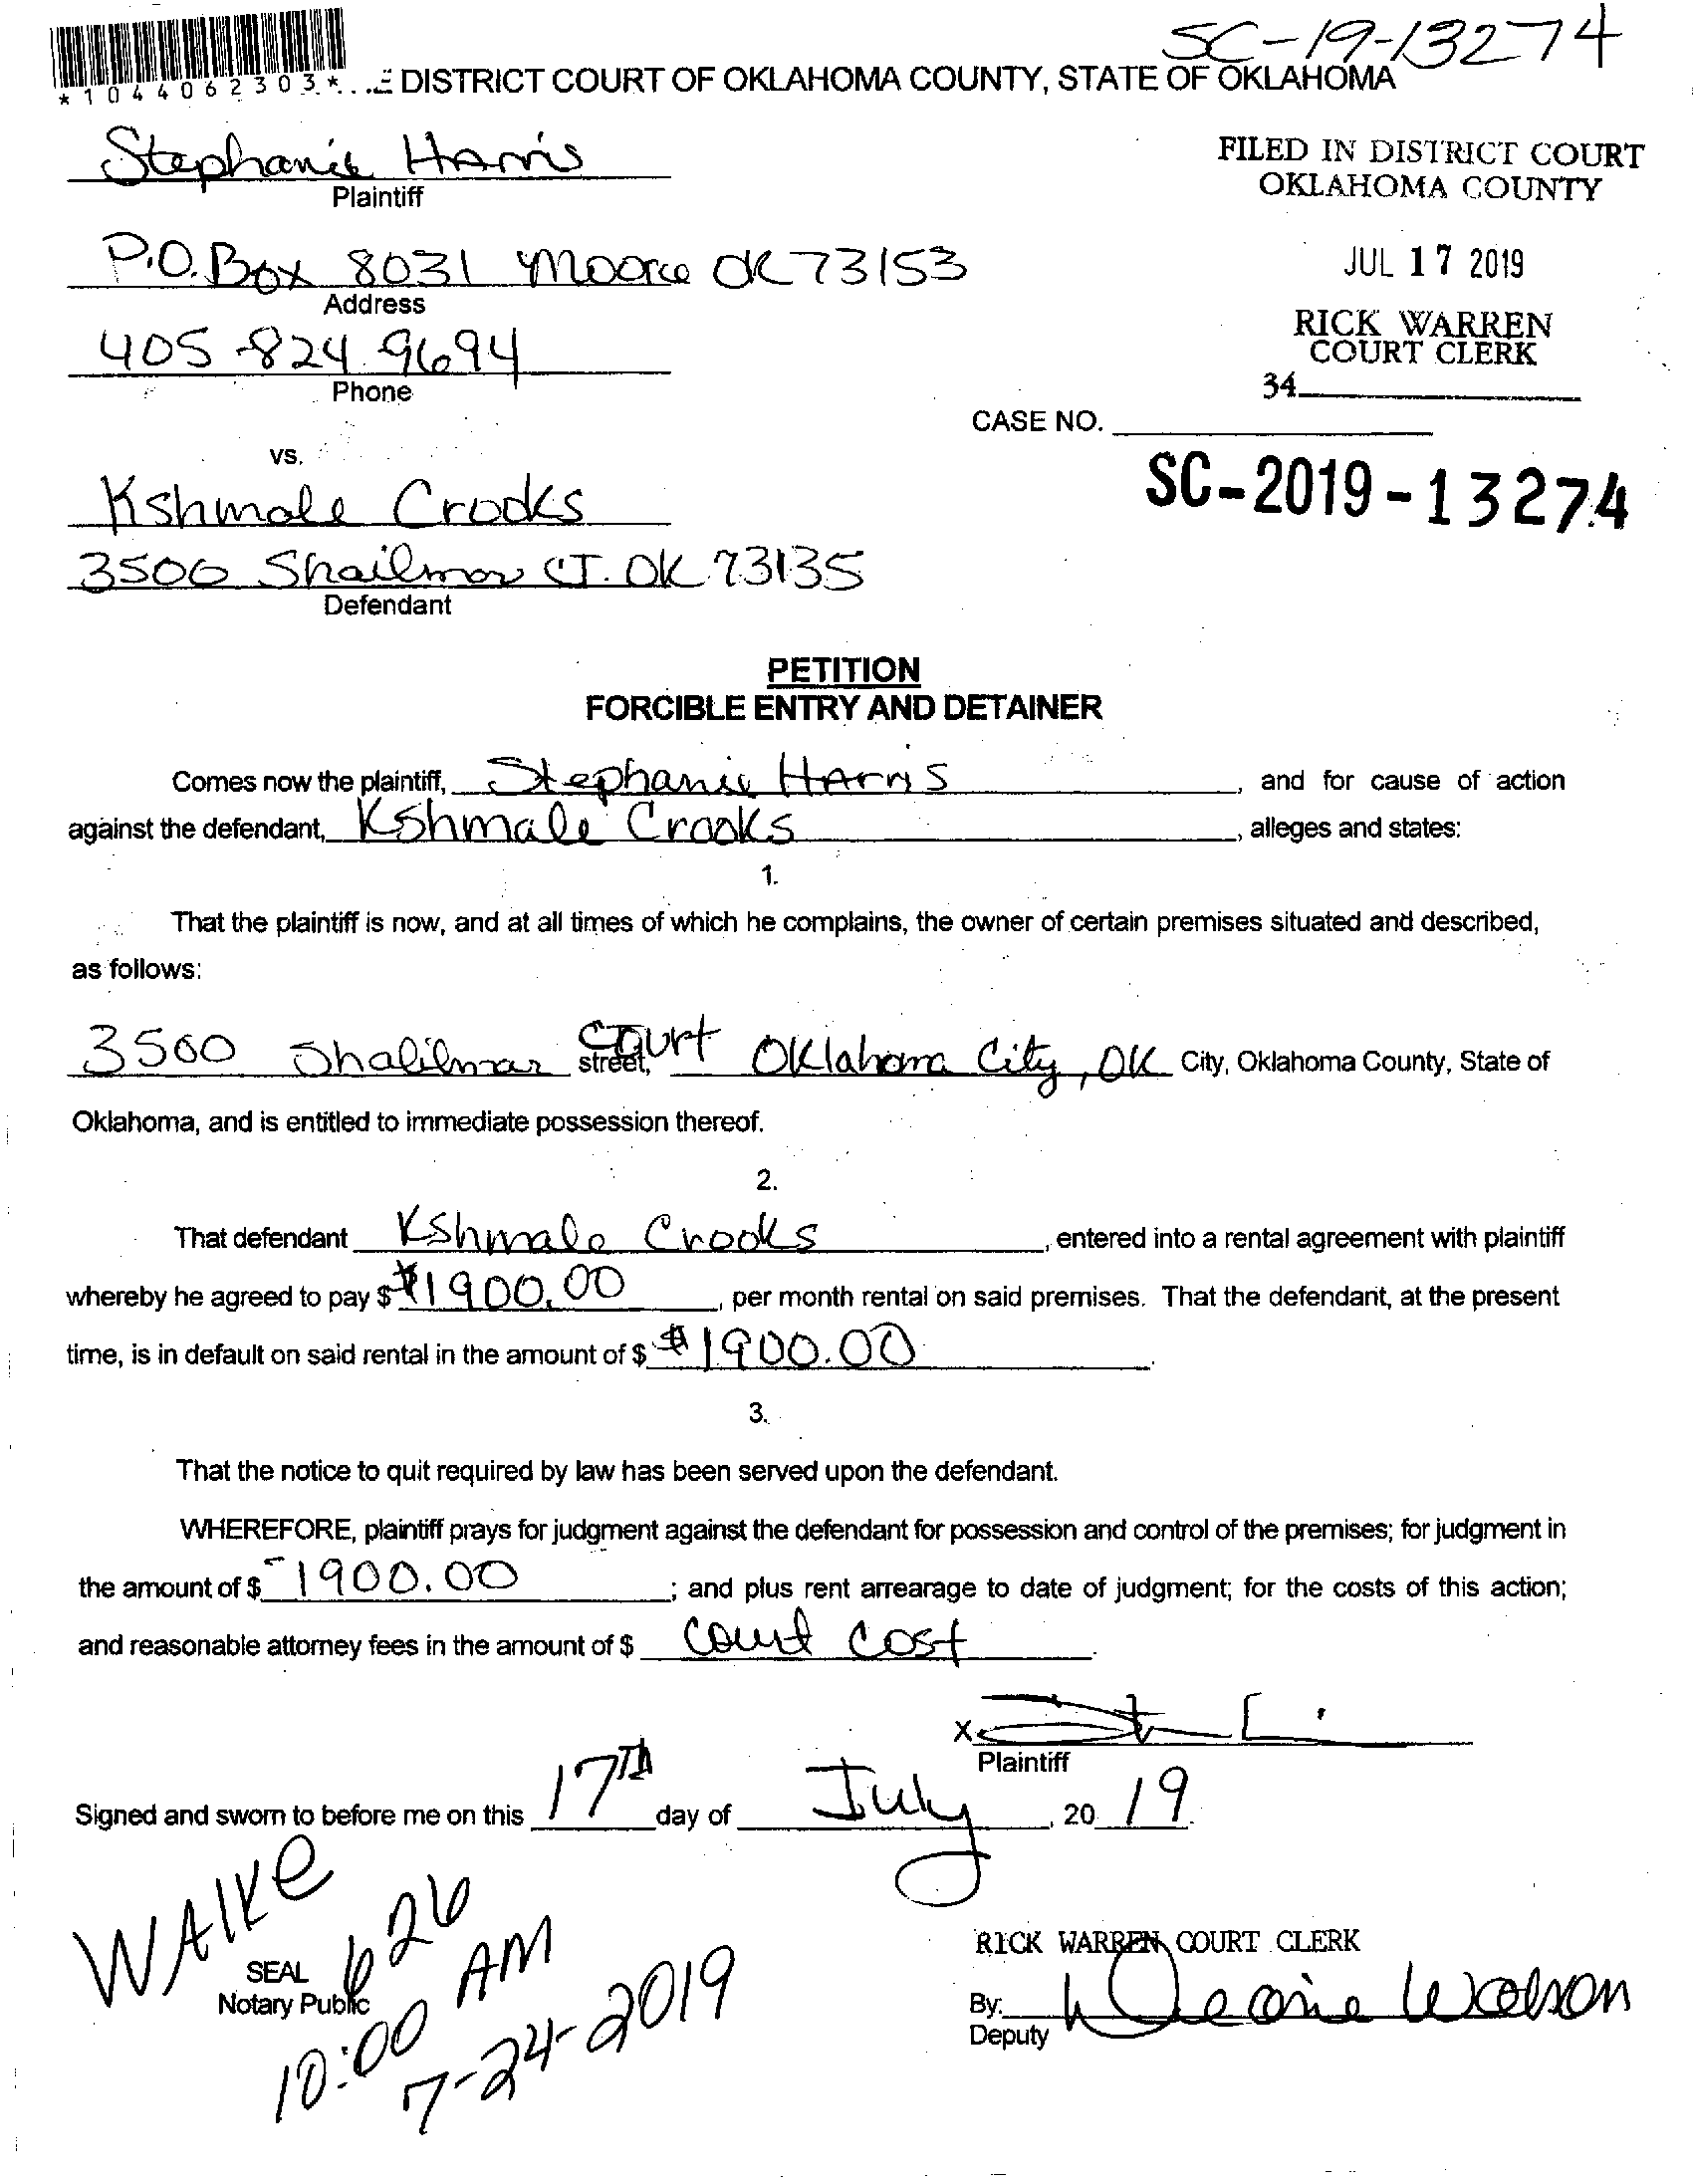 SC-19-13274
*1044062303*
DISTRICT COURT OF OKLAHOMA COUNTY, STATE OF OKLAHOMA
Stephanie Harris
Plaintiff
FILED IN DISTRICT COURT
OKLAHOMA COUNTY
P.O. Box 8031 Moore OK 73153
Address
JUL 17 2019
405-824-9694
Phone
RICK WARREN
COURT CLERK
34
CASE NO.
SC-2019-13274
vs.
Kshmale Crooks
3500 Shailmar CT. OK 73135
Defendant
PETITION
FORCIBLE ENTRY AND DETAINER
Comes now the plaintiff, Stephanie Harris, and for cause of action
against the defendant, Kshmale Crooks, alleges and states:
1.
That the plaintiff is now, and at all times of which he complains, the owner of certain premises situated and described,
as follows:
3500 Shalilmar Court street, Oklahoma City, OK City, Oklahoma County, State of
Oklahoma, and is entitled to immediate possession thereof.
2.
That defendant Kshmale Crooks, entered into a rental agreement with plaintiff
whereby he agreed to pay $ $1900.00, per month rental on said premises. That the defendant, at the present
time, is in default on said rental in the amount of $ $1900.00.
3.
That the notice to quit required by law has been served upon the defendant.
WHEREFORE, plaintiff prays for judgment against the defendant for possession and control of the premises; for judgment in
the amount of $ 1900.00; and plus rent arrearage to date of judgment; for the costs of this action;
and reasonable attorney fees in the amount of $ Court Cost.
X
Plaintiff
Signed and sworn to before me on this 17TH day of July, 20 19.
WALKE
626
SEAL
Notary Public
10:00 AM
7-24-2019
RICK WARREN COURT CLERK
By:
Deputy